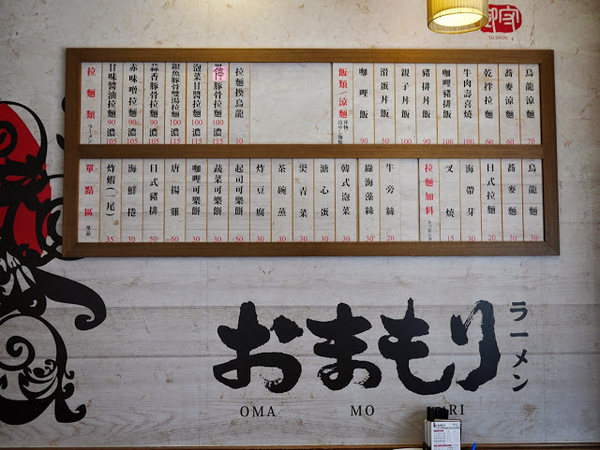 御守
YU SHOU
拉麵類 ラーメン
甘味醬油拉麵 90 濃105
赤味噌拉麵 90 濃105
蒜香豚骨拉麵 90 濃105
銀魚豚骨雙湯拉麵 100 濃115
泡菜豚骨拉麵 100 濃115
停 豚骨拉麵 100 濃115
拉麵換烏龍 10
飯類/涼麵
咖哩飯 90
滑蛋丼飯 50
親子丼飯 80
豬排丼飯 90
咖哩豬排飯
牛肉壽喜燒 100
乾拌拉麵 60
蕎麥涼麵 60
烏龍涼麵 70
單點區 單品
炸蝦(一尾) 35
海鮮捲 30
日式豬排 50
唐揚雞 60
咖哩可樂餅 30
蔬菜可樂餅 30
起司可樂餅 50
炸豆腐
茶碗蒸 30
燙青菜 30
溏心蛋 20
韓式泡菜 30
綠海藻絲 30
牛蒡絲 20
拉麵加料 トッピング
叉燒 15
海帶芽 30
日式拉麵 20
蕎麥麵 30
烏龍麵 30
おまもり
ラーメン
OMA MO RI